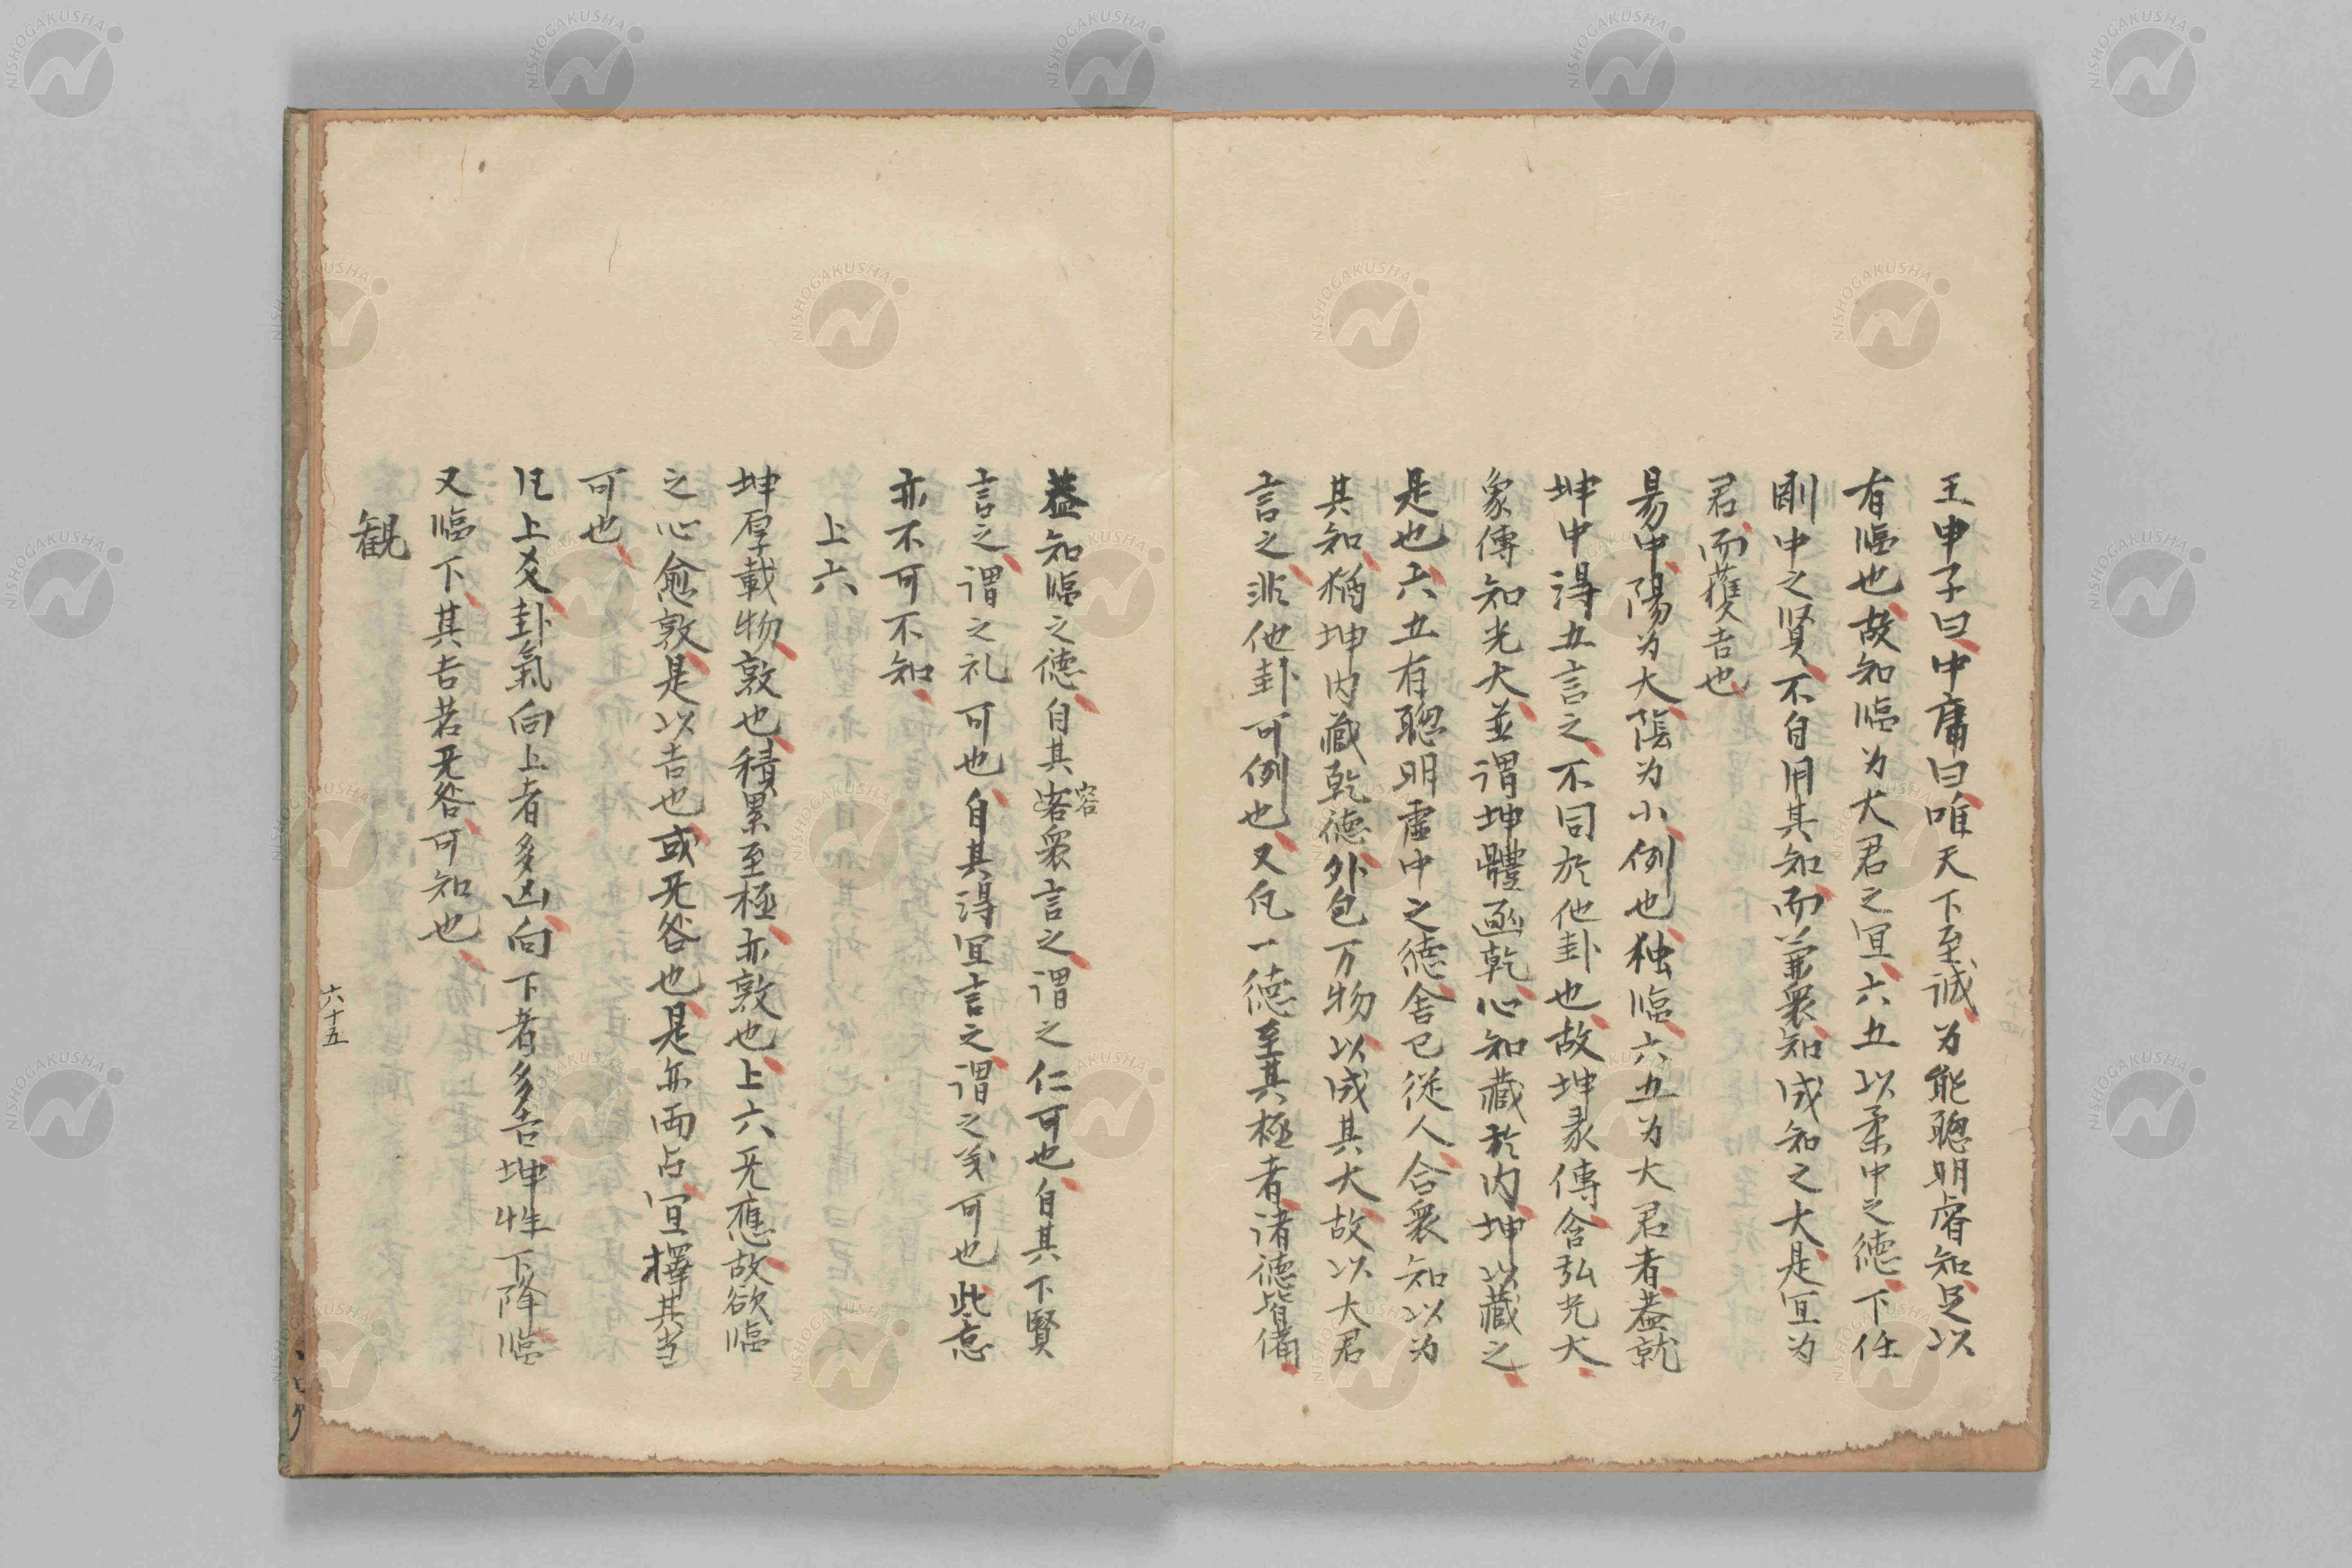 王申子曰中庸曰唯天下至誠为能聰明睿知足以
有臨也故知臨为大君之宜六五以柔中之德下任
剛中之賢不自用其知而兼衆知成知之大是宜为
君而獲吉也
易中陽为大陰为小例也独臨六五为大君者蓋就
坤中得五言之不同於他卦也故坤彖傳含弘光大
象傳知光大並謂坤體函乾心知藏於内坤以藏之
是也六五有聰明虚中之德舍已従人合衆知以为
其知猶坤内藏乾德外包万物以成其大故以大君
言之非他卦可例也又凡一德至其極者诸德皆備
蓋知臨之德自其容衆言之謂之仁可也自其下賢
容
言之謂之礼可也自其得宜言之謂之义可也此意
亦不可不知
上六
坤厚載物敦也積累至極亦敦也上六无應故欲臨
之心愈敦是以吉也或无咎也是亦両占宜擇其当
可也
凡上爻卦氣向上者多凶向下者多吉坤性下降臨
又臨下其吉若无咎可知也
観
六十五
NISHOGAKUSHA